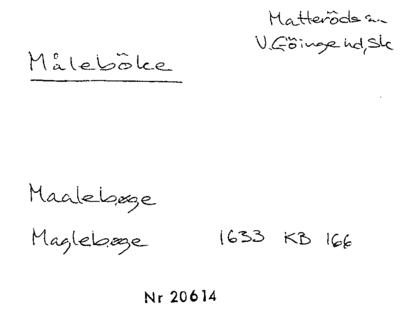 Matteröds sn
V. Göinge hd, Sk
Måleböke
Maalebøge
Maglebøge 1633 KB 166
Nr 20614